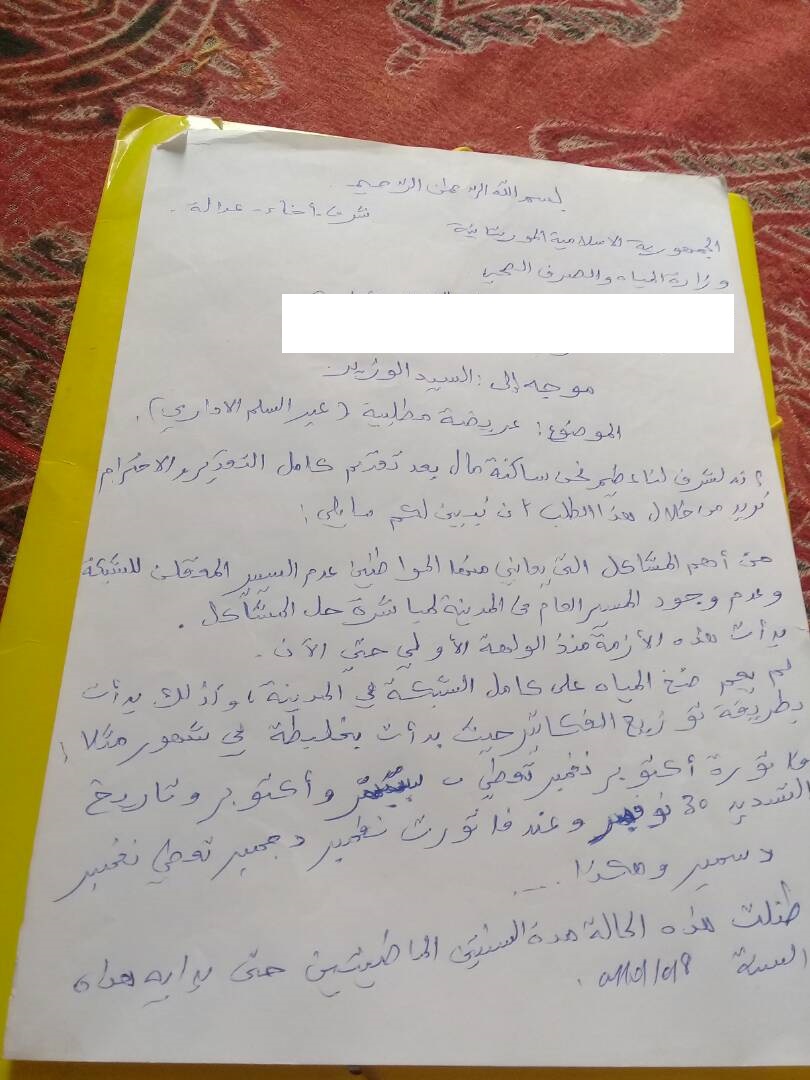 بسم الله الرحمان الرحيم
شرف - أخاء - عدالة .
الجمهورية الاسلامية الموريتانية
وزارة المياه والصرف الصحي
موجه إلى : السيد الوزير
الموضوع : عريضة مطلبية ( عبر السلم الاداري ) .
انه لشرف لنا عظيم نحن ساكنة مال بعد تقديم كامل التقدير والاحترام
نريد من خلال هذا الطلب أن نبين لكم مايلي :
من أهم المشاكل التي يعاني منها المواطنين عدم السير المعقلن للشبكة
وعدم وجود المسير العام في المدينة لمباشرة حل المشاكل .
بدأت هذه الأزمة منذ الولهة الأولى حتى الآن .
لم يعم ضخ المياه على كامل الشبكة في المدينة ، وآذلك بدأت
بطريقة توزيع الفكاتير حيث بدأت بخليطة في شهور مثلا :
فاتورة أكتوبر نفمبر توطي وأكتوبر وتاريخ
التسديد 30 نوفمبر وعند فاتورت نفمبر دجمبر توطي نفمبر
دسمبر وهكذا ....
ظلت هذه الحالة مدة السنتين الماطيتين حتى بدايه هذه
السنة